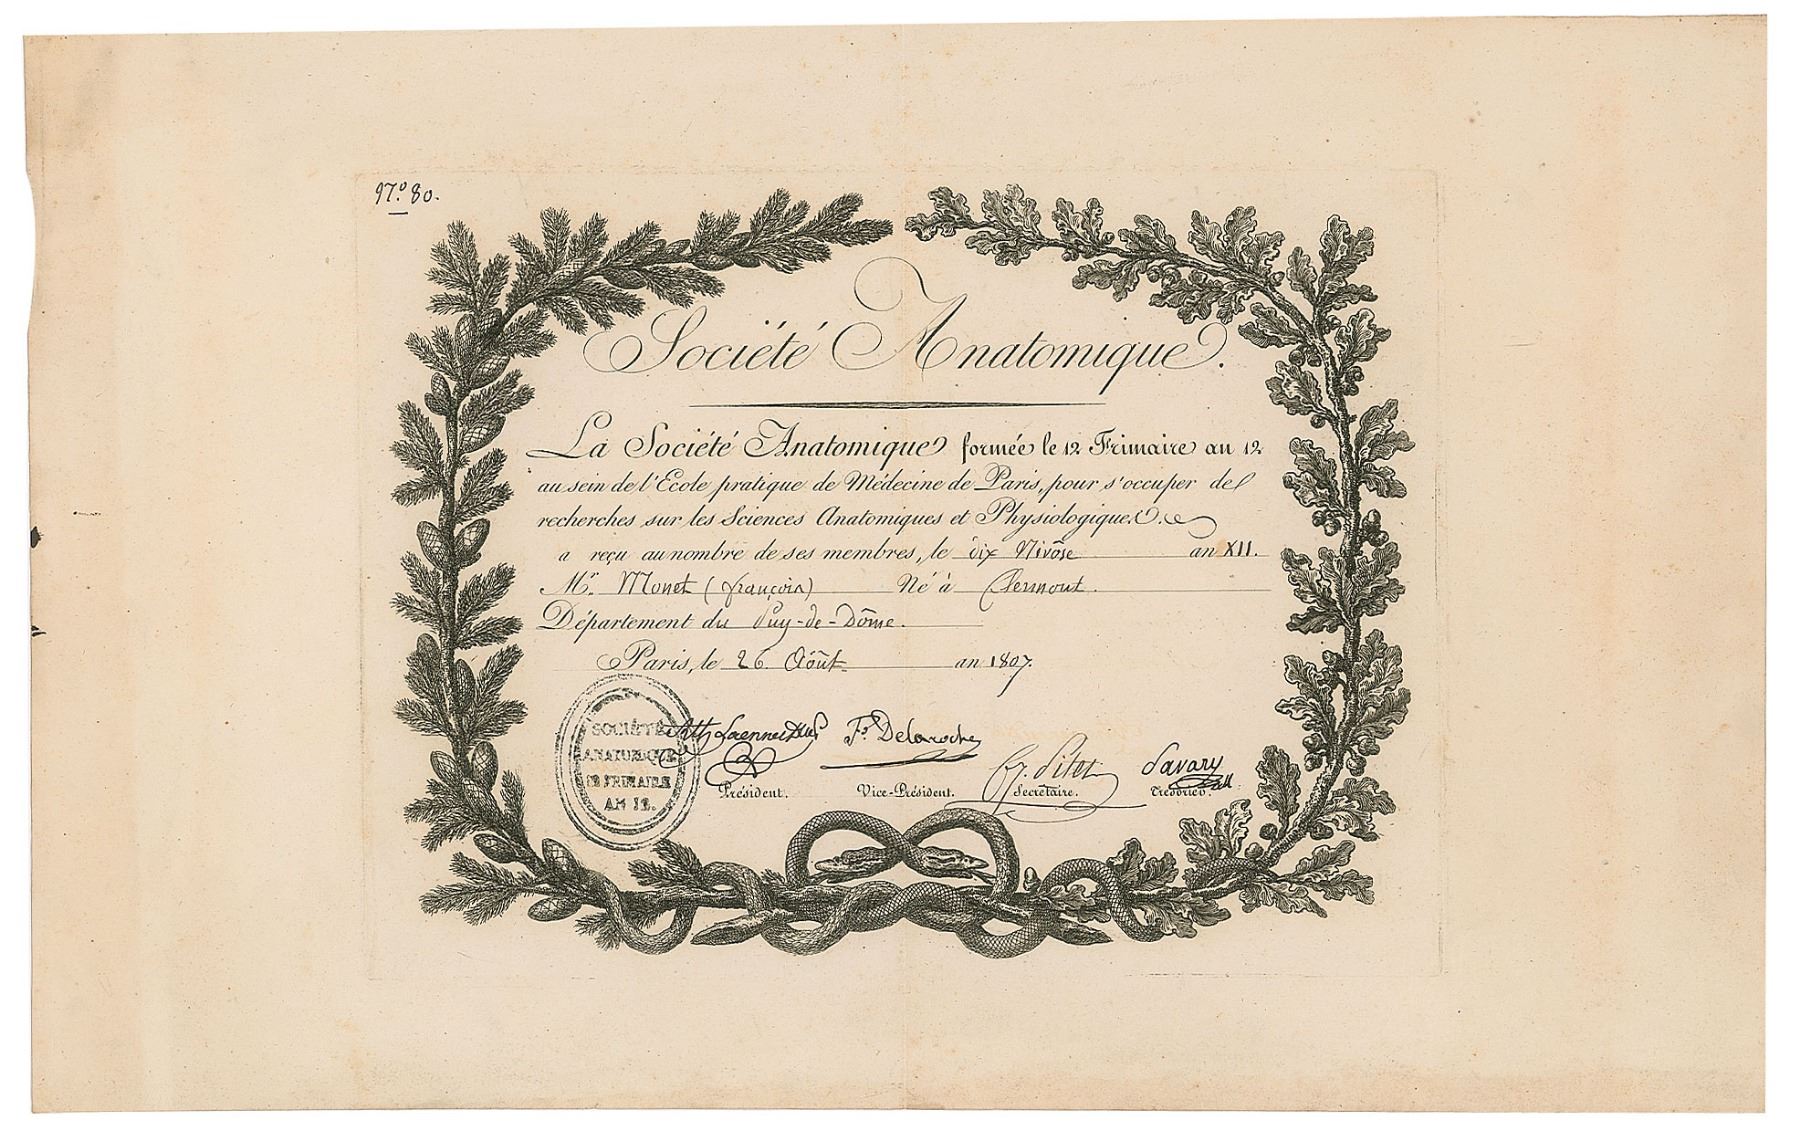 N.º 80.
Société Anatomique.
La Société Anatomique formée le 12 Frimaire an 12
au sein de l'Ecole pratique de Médecine de Paris, pour s'occuper de
recherches sur les Sciences Anatomiques et Physiologiques.
a reçu au nombre de ses membres, le dix Nivôse an XII.
Mr. Monet (françois) Né à Clermont.
Département du Puy-de-Dôme.
Paris, le 26 Août an 1807.
SOCIÉTÉ
ANATOMIQUE
12 FRIMAIRE
AN 12.
Laennec F.s Delaroche
Savary
Président. Vice-Président. Secrétaire. Trésorier.